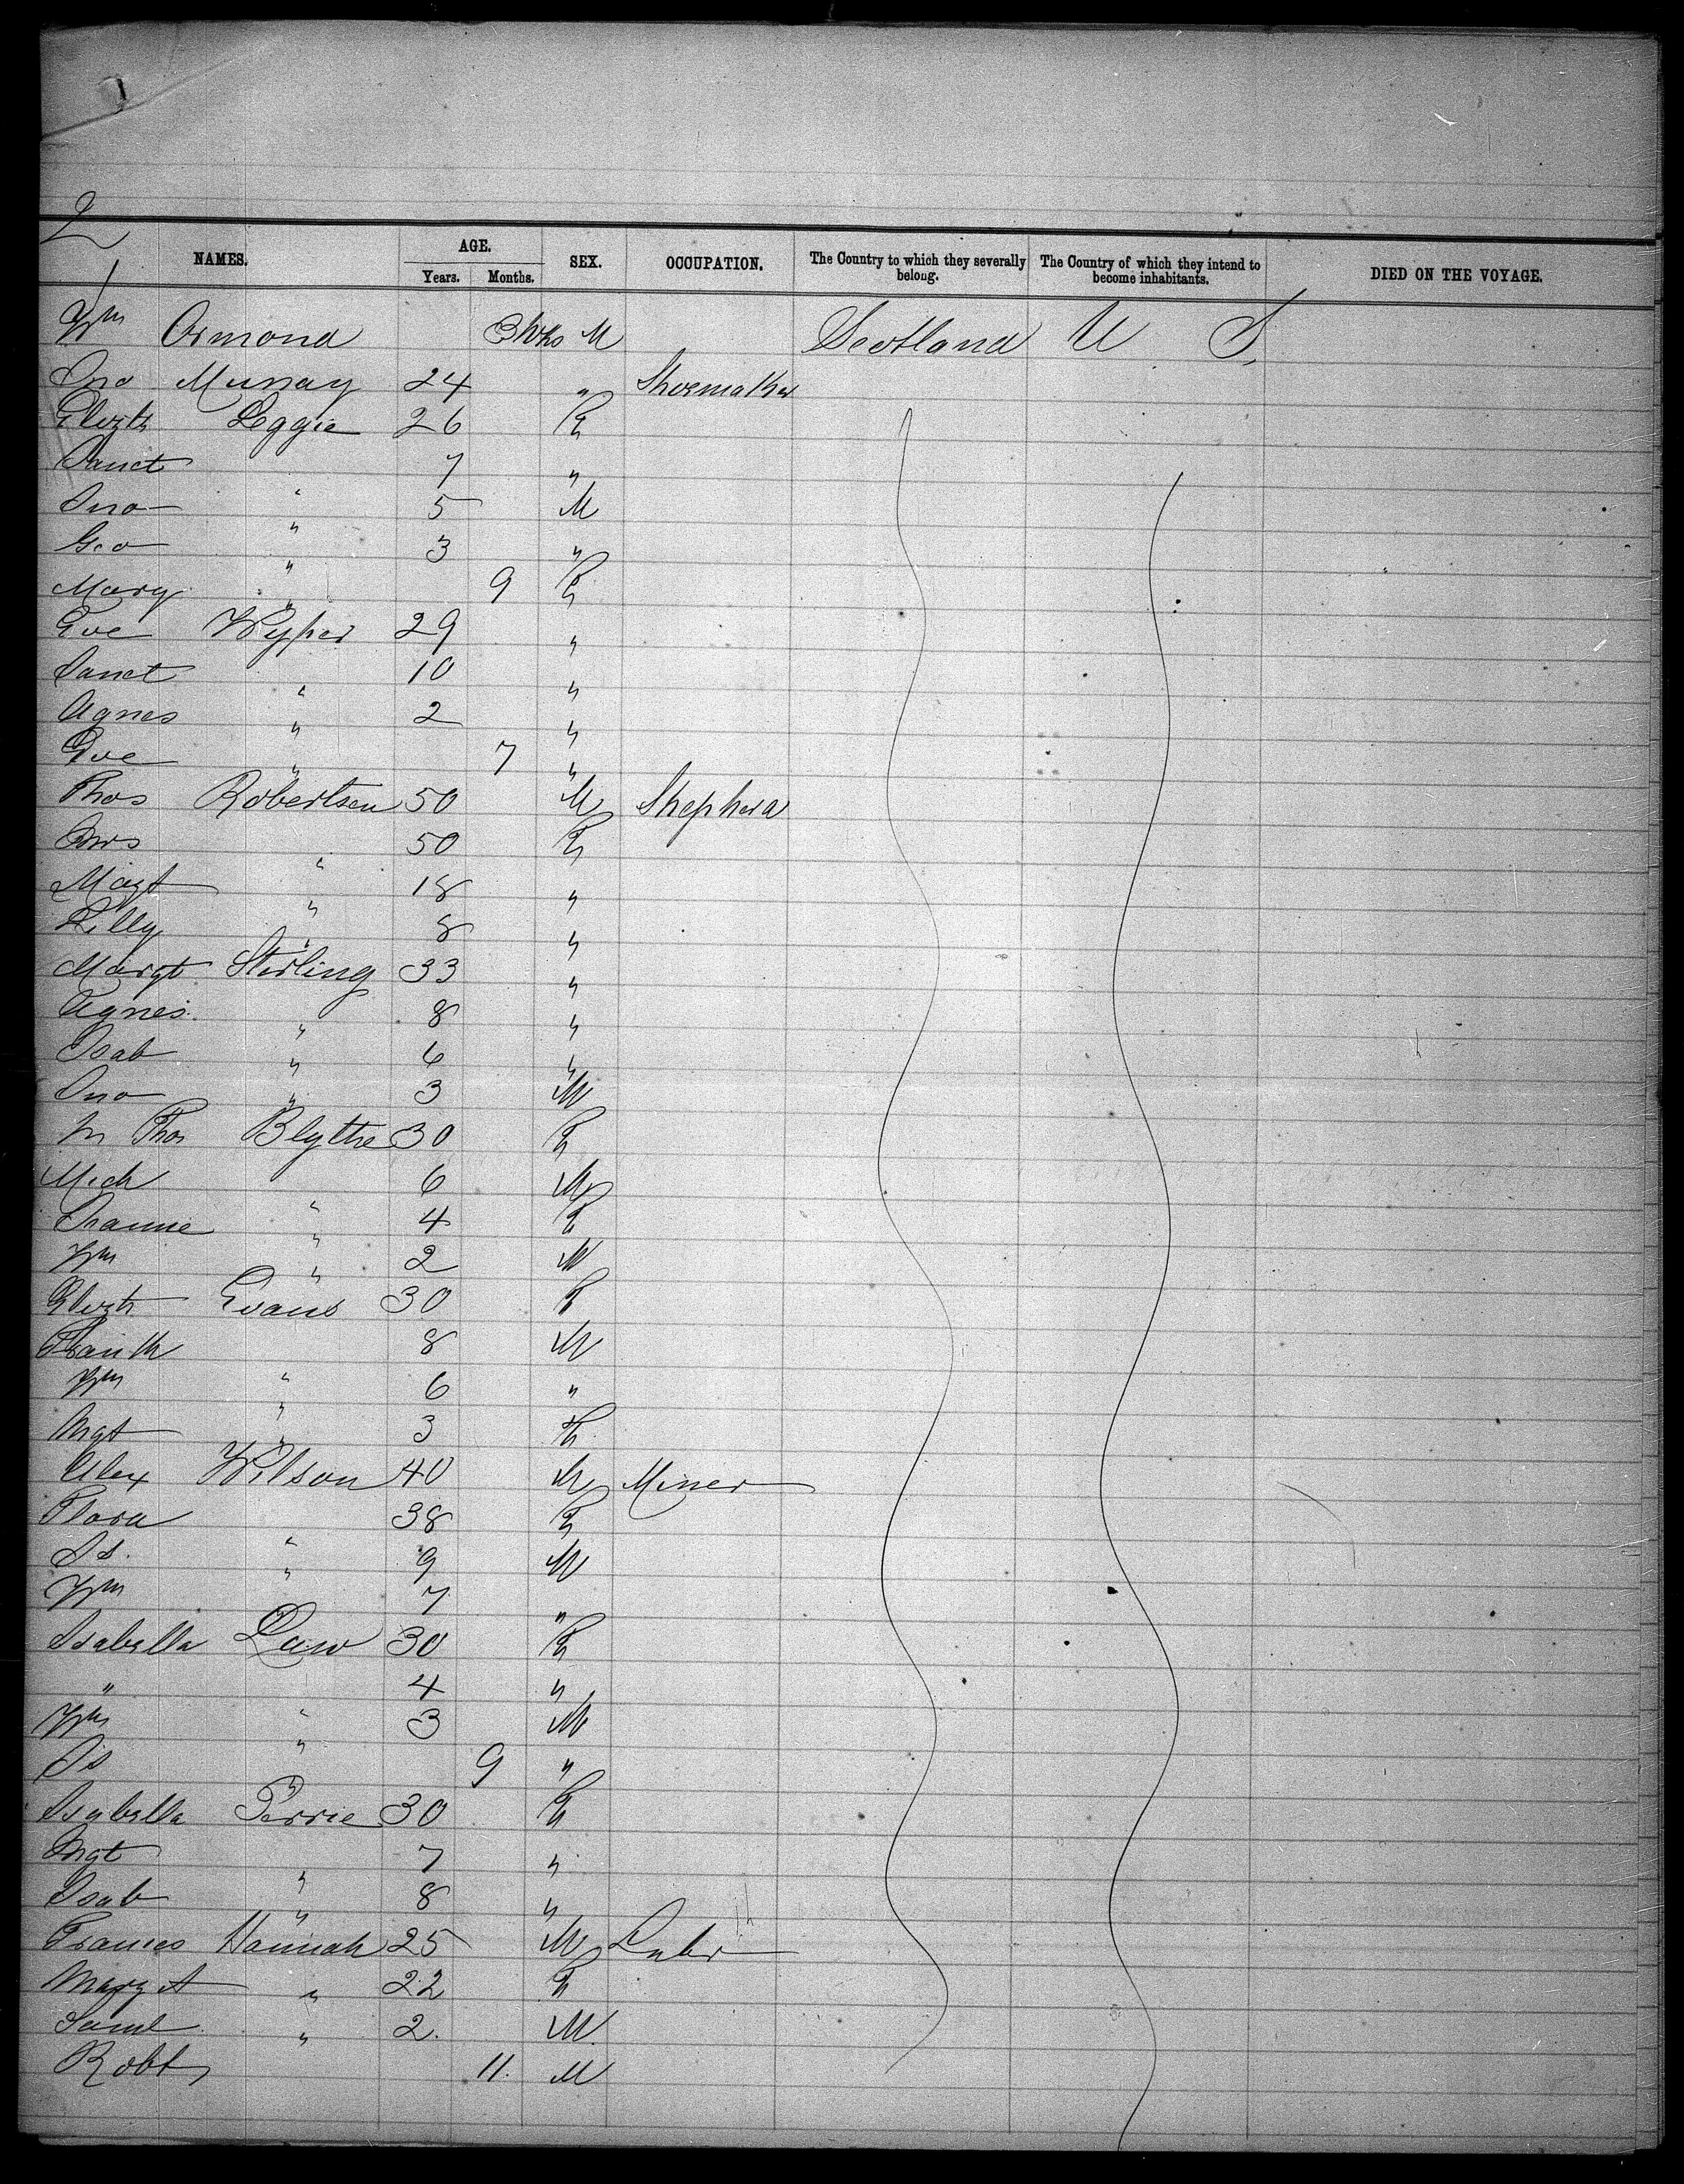 2
NAMES. AGE. Years. Months. SEX. OCCUPATION. The Country to which they severally belong. The Country of which they intend to become inhabitants. DIED ON THE VOYAGE.
Wm Ormond 3 wks M Scotland U S
Jno Murray 24 " Shoemaker
Elizth Leggie 26 F
Janet " 7 "
Jno " 5 M
Geo " 3 "
Mary " 9 F
Eve Wyper 29 "
Janet " 10 "
Agnes " 2 "
Eve " 7 "
Thos Robertson 50 M Shepherd
Mrs " 50 F
Magt " 18 "
Lilly " 8 "
Margt Sterling 33 "
Agnes " 8 "
Isab " 6 "
Jno " 3 M
Thos Blythe 30 F
Mich " 6 M
" 4 F
Wm " 2 M
Elizth Evans 30 F
Frank " 8 M
Wm " 6 "
Mgt " 3 F
Alex Wilson 40 M Miner
Flora " 38 F
Js. " 9 M
Wm 7 "
Isabella Law 30 F
" " 4 "
Wm " 3 M
Js " 9 "
Isabella Perrie 30 F
Mgt " 7 "
Isab " 8 "
Frances Hannah 25 M Labr
Mary A " 22 F
Saml " 2. M.
Robt 11. M